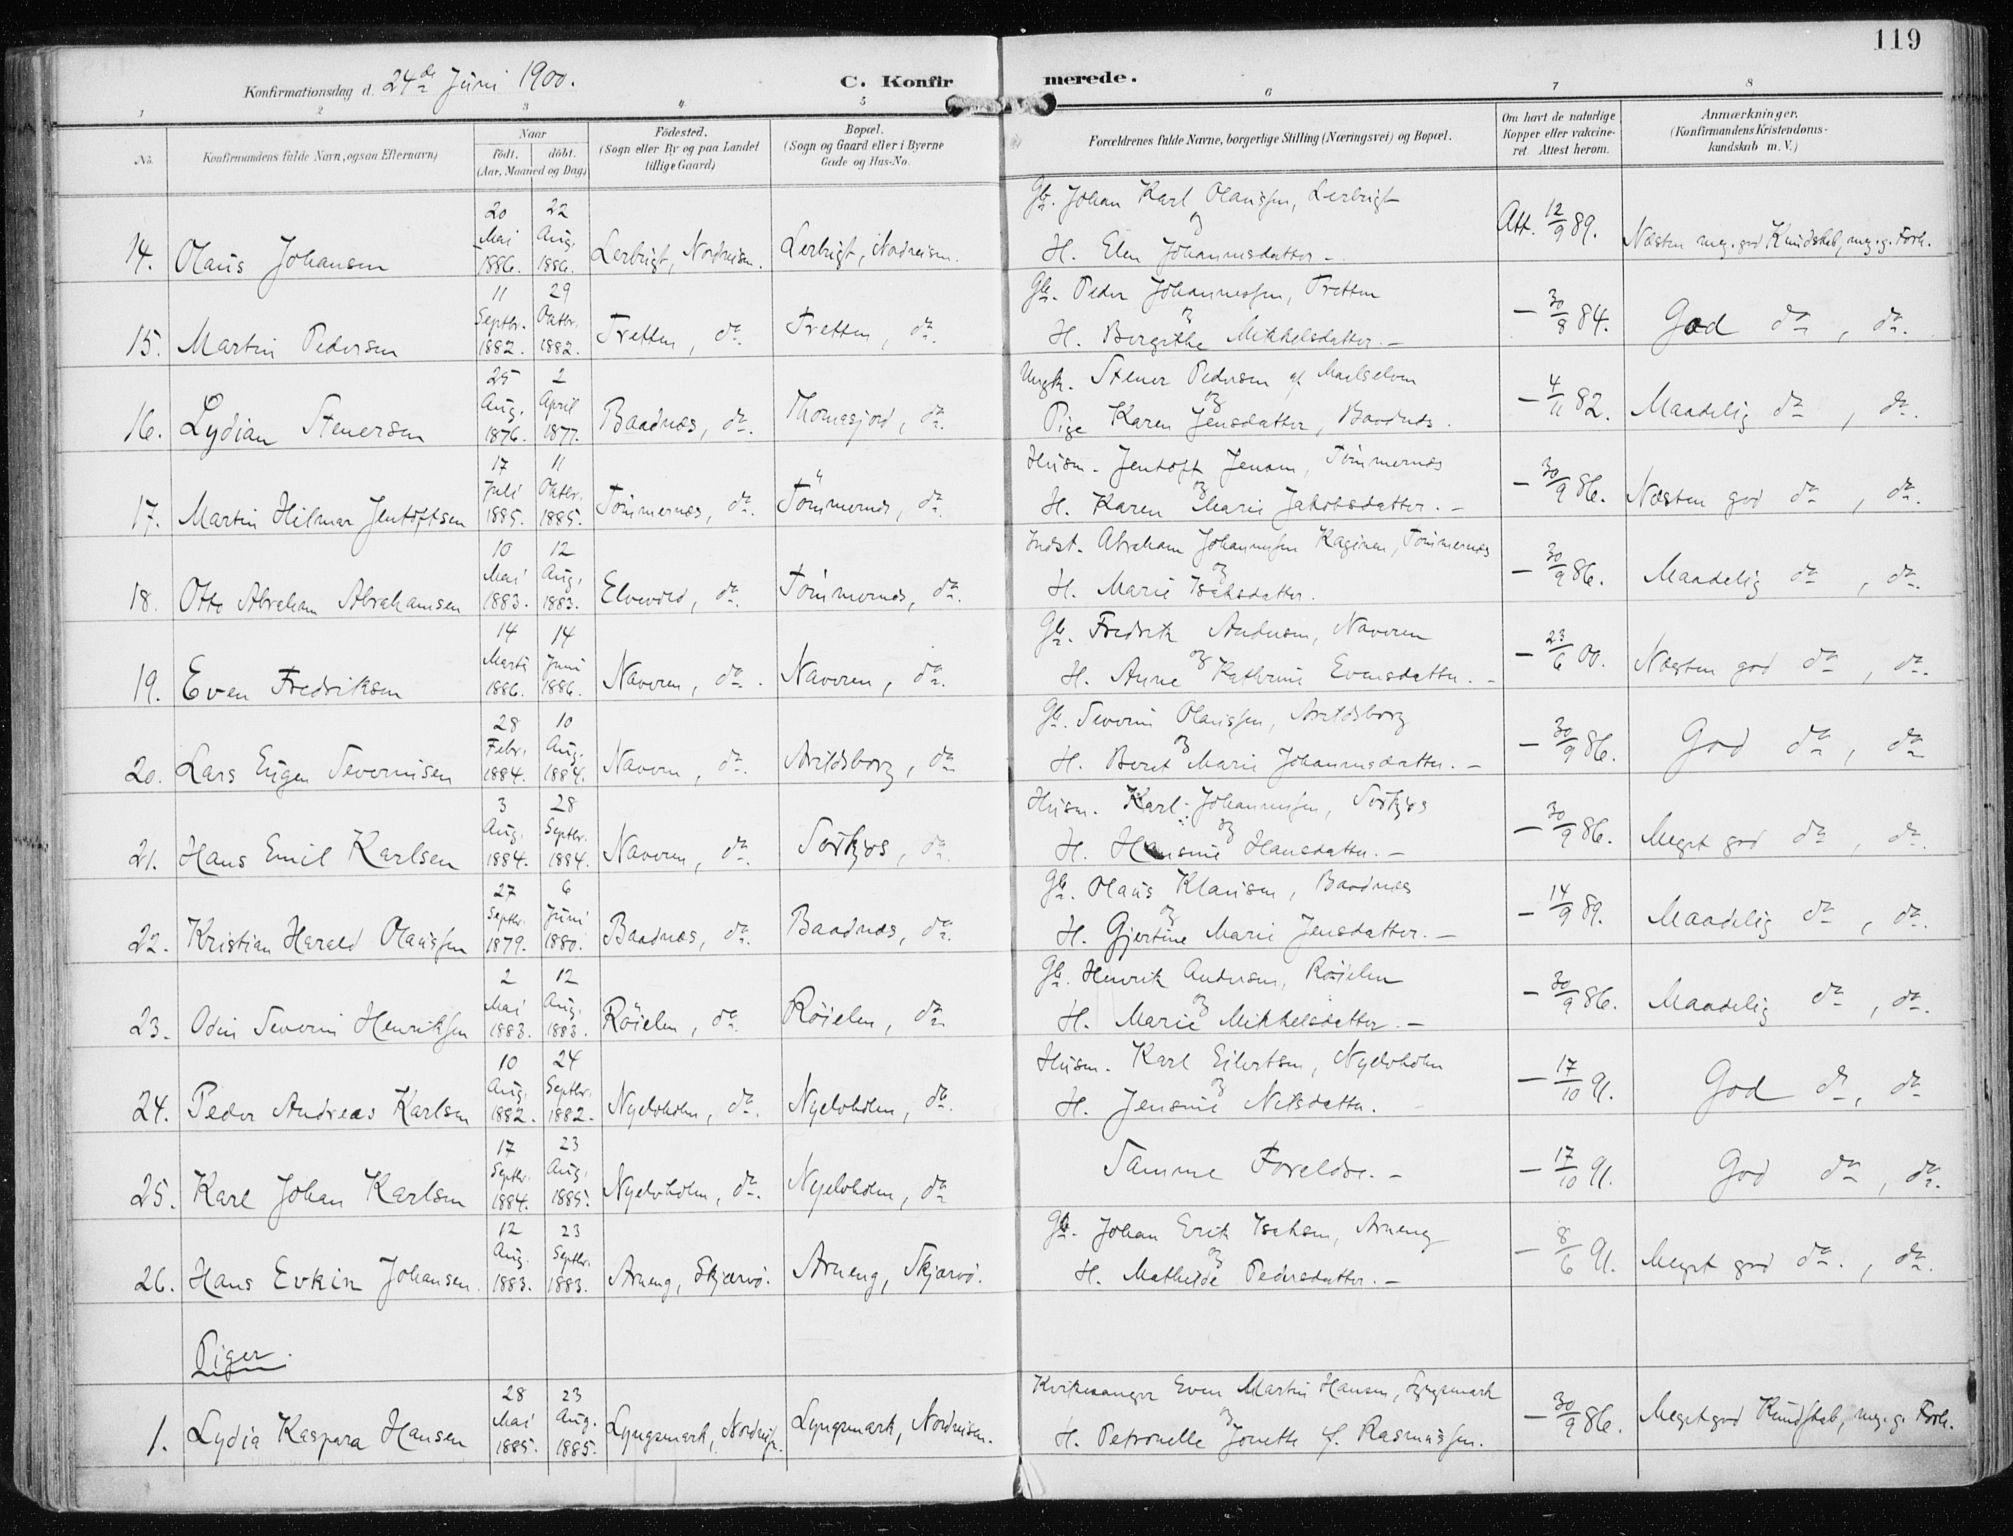 119
Konfirmationsdag d. 24de Juni 1900.
C. Konfirmerede.
1 2 3 4 5 6 7 8
No.
Konfirmandens fulde Navn, ogsaa Efternavn)
Naar
födt. döbt.
(Aar, Maaned og Dag)
Födested.
(Sogn eller By og paa Landet
tillige Gaard)
Bopæl.
(Sogn og Gaard eller i Byerne
Gade og Hus-No.
Forældrenes fulde Navne, borgerlige Stilling (Næringsvei) og Bopæl.
Om havt de naturlige
Kopper eller vakcine-
ret. Attest herom.
Anmærkninger.
(Konfirmandens Kristendoms-
kundskab m. V.)
14. Olaus Johansen 20 Mai 1886. 22 Aug. 1886. Lerbugt, Nordreisen. Lerbugt, Nordreisen. Gbr. Johan Karl Olaussen, Lerbugt
og
H. Elen Johannesdatter – Att. 12/9 89. Næsten meg. god Kundskab, meg. g. Forh.
15. Martin Pedersen 11 Septbr. 1882. 29 Oktbr. 1882. Tretten, do. Tretten, do. Gbr. Peder Johannessen, Tretten
og
H. Bergithe Mikkelsdatter. – – 30/8 84. God do, do.
16. Lydian Stenersen 25 Aug. 1876. 2 April 1877. Baadnæs, do. Thomasjord, do. Ungk. Stener Pedersen af Maalselven
og
Pige Karen Jensdatter, Baadnæs. – 4/11 82. Maadelig do, do.
17. Martin Hilmar Jentoftsen 17 Juli 1885. 11 Oktbr. 1885. Tömmernæs, do. Tömmernæs, do. Husm. Jentoft Jensen, Tömmernæs
og
H. Karen Marie Jakobsdatter. – – 30/9 86. Næsten god do, do.
18. Otto Abraham Abrahamsen 10 Mai 1883. 12 Aug. 1883. Elvevold, do. Tömmernæs, do. Indst. Abraham Johannessen Kaginen, Tömmernæs
og
H. Marie Isaksdatter. – 30/9 86. Maadelig do, do.
19. Even Fredriksen 14 Marts 1886. 14 Juni 1886. Naveren, do. Naveren, do. Gbr. Fredrik Andersen, Naveren
og
H. Anne Kathrine Evensdatter. – – 23/6 00. Næsten god do, do.
20. Lars Eugen Severinsen 28 Febr. 1884. 10 Aug. 1884. Naveren, do. Avildsborg, do Gbr. Severin Olaussen, Avildsborg
og
H. Beret Marie Johannesdatter. – – 30/9 86. God do, do
21. Hans Emil Karlsen 3 Aug. 1884. 28 Septbr. 1884. Naveren, do. Sörkjos, do. Husm. Karl Johannessen, Sörkjos
og
H. Hansine Hansdatter. – – 30/9 86. Meget god do, do.
22. Kristian Harald Olaussen 27 Septbr. 1879. 6 Juni 1880. Baadnæs, do. Baadnæs, do. Gbr. Olaus Klausen, Baadnæs
og
H. Gjertine Marie Jensdatter. – – 14/9 89. Maadelig do, do.
23. Odin Severin Henriksen 2 Mai 1883. 12 Aug. 1883. Röielen, do. Röielen, do. Gbr. Henrik Andersen, Röielen
og
H. Marie Mikkelsdatter. – – 30/9 86. Maadelig do, do.
24. Peder Andreas Karlsen 10 Aug. 1882. 24 Septbr. 1882. Nyelvholm, do. Nyelvholm, do. Husm. Karl Eilertsen, Nyelvholm
og
H. Jensine Nilsdatter. – 17/10 91. God do, do
25. Karl Johan Karlsen 17 Septbr. 1884. 23 Aug. 1885. Nyelvholm, do. Nyelvholm, do Samme Foreldre. – – 17/10 91. God do, do.
26. Hans Evkin Johansen. 12 Aug. 1883. 23 Septbr. 1883. Arneng, Skjærvö. Arneng, Skjærvö. Gbr. Johan Erik Isaksen, Arneng
og
H. Mathilde Pedersdatter. – – 8/6 91. Meget god do., do.
Piger.
1. Lydia Kaspara Hansen 28 Mai 1885. 23 Aug. 1885. Lyngsmark, Nordreisn. Lyngsmark, Nordreisen. Kviksanger Even Martin Hansen, Lyngsmark
og
H. Petronelle Jonette f. Rasmussen. – 30/9 86. Meget god Kundskab, meg. g. Forh.